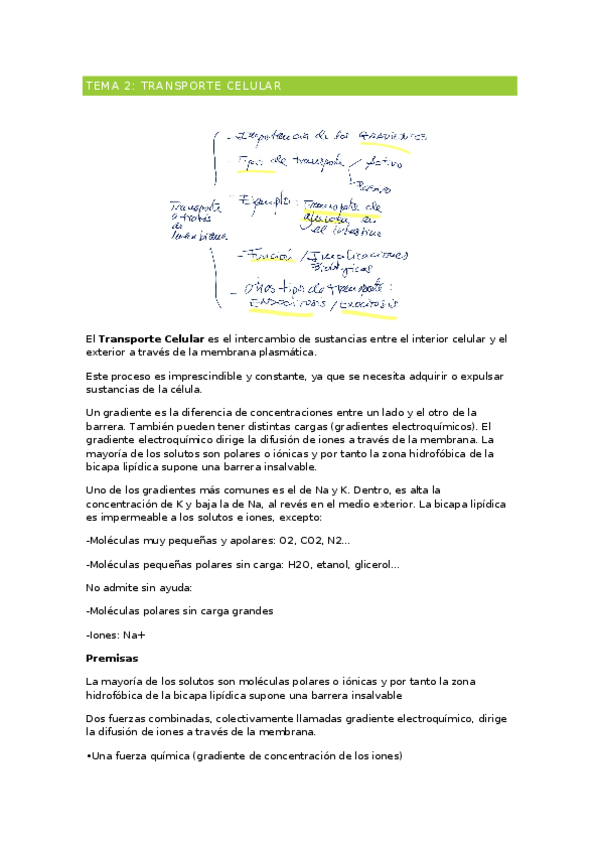 TEMA 2: TRANSPORTE CELULAR
- Importancia de los GRADIENTES
- Tipos de transporte / Activo
Pasivo
Transporte
a través
de
membrana
- Ejemplo: Transporte de
glucosa en
el intestino
- Función / Implicaciones
Biológicas
- Otros tipos de transporte:
ENDOCITOSIS / EXOCITOSIS
El Transporte Celular es el intercambio de sustancias entre el interior celular y el
exterior a través de la membrana plasmática.
Este proceso es imprescindible y constante, ya que se necesita adquirir o expulsar
sustancias de la célula.
Un gradiente es la diferencia de concentraciones entre un lado y el otro de la
barrera. También pueden tener distintas cargas (gradientes electroquímicos). El
gradiente electroquímico dirige la difusión de iones a través de la membrana. La
mayoría de los solutos son polares o iónicas y por tanto la zona hidrofóbica de la
bicapa lipídica supone una barrera insalvable.
Uno de los gradientes más comunes es el de Na y K. Dentro, es alta la
concentración de K y baja la de Na, al revés en el medio exterior. La bicapa lipídica
es impermeable a los solutos e iones, excepto:
-Moléculas muy pequeñas y apolares: O2, CO2, N2...
-Moléculas pequeñas polares sin carga: H2O, etanol, glicerol...
No admite sin ayuda:
-Moléculas polares sin carga grandes
-Iones: Na+
Premisas
La mayoría de los solutos son moléculas polares o iónicas y por tanto la zona
hidrofóbica de la bicapa lipídica supone una barrera insalvable
Dos fuerzas combinadas, colectivamente llamadas gradiente electroquímico, dirige
la difusión de iones a través de la membrana.
•Una fuerza química (gradiente de concentración de los iones)